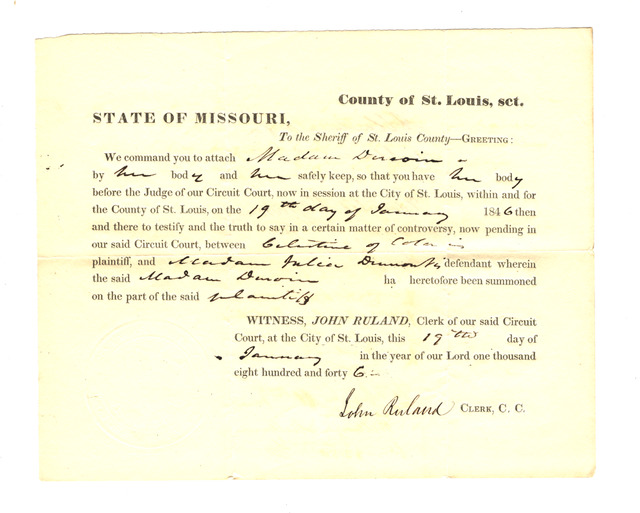 County of St. Louis, sct.
STATE OF MISSOURI,
To the Sheriff of St. Louis County—GREETING:
We command you to attach Madam Derwin
by her body and her safely keep, so that you have her body
before the Judge of our Circuit Court, now in session at the City of St. Louis, within and for
the County of St. Louis, on the 19th day of January 1846 then
and there to testify and the truth to say in a certain matter of controversy, now pending in
our said Circuit Court, between Celestine of Color is
plaintiff, and Madam Julia Dumont, defendant wherein
the said Madam Derwin ha heretofore been summoned
on the part of the said plaintiff
WITNESS, JOHN RULAND, Clerk of our said Circuit
Court, at the City of St. Louis, this 19th day of
January in the year of our Lord one thousand
eight hundred and forty 6
John Ruland CLERK, C. C.